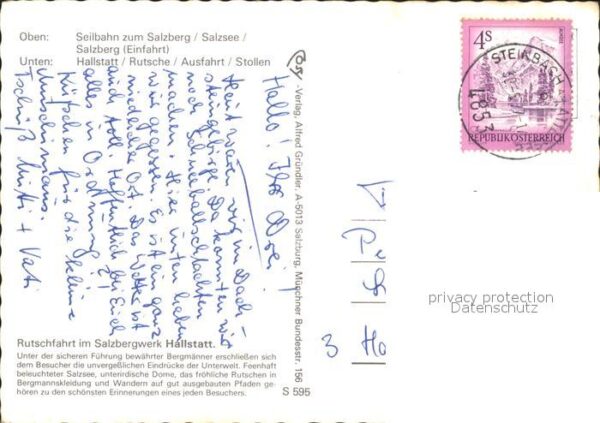 Oben: Seilbahn zum Salzberg / Salzsee /
Salzberg (Einfahrt)
Unten: Hallstatt / Rutsche / Ausfahrt / Stollen
Hallo! Ihr Drei!
Heut waren wir im Dach-
steingebirge. Da konnten wir
noch Schneeballschlachten
machen. Hier unten haben
wir gegessen. Es ist ein ganz
niedlicher Ort. Das Wetter ist
auch toll. Hoffentlich bei Euch
alles in Ordnung!
Küßchen für die kleine
Tschüß Mutti + Vati
-Verlag, Alfred Gründler, A-5013 Salzburg, Münchner Bundesstr. 156
4S
REPUBLIK ÖSTERREICH
STEINBACH
4853
3
privacy protection
Datenschutz
Rutschfahrt im Salzbergwerk Hallstatt.
Unter der sicheren Führung bewährter Bergmänner erschließen sich
dem Besucher die unvergeßlichen Eindrücke der Unterwelt. Feenhaft
beleuchteter Salzsee, unterirdische Dome, das fröhliche Rutschen in
Bergmannskleidung und Wandern auf gut ausgebauten Pfaden ge-
hören zu den schönsten Erinnerungen eines jeden Besuchers.
S 595